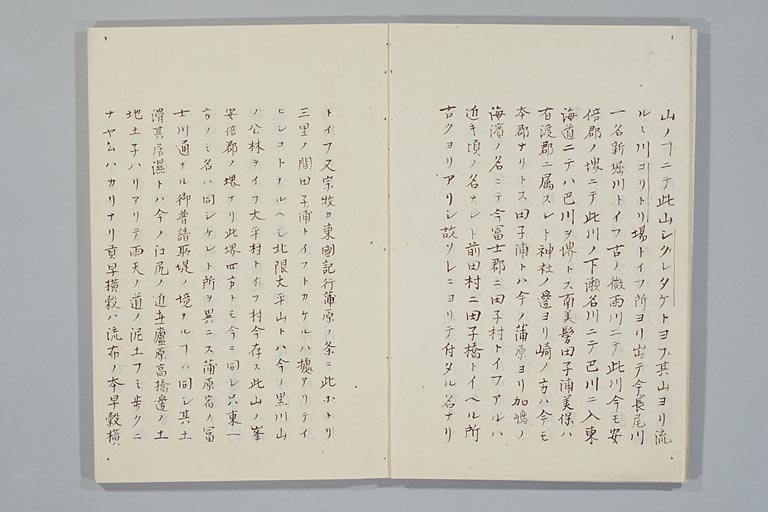 山ノコニテ此山シグレタケトヨブ其山ヨリ流
ルヽ川コリトリ場トイフ所ヨリ出テ今長尾川
一名新堀川トイフ古ノ微雨川ニテ此川今モ安
倍郡ノ堺ニテ此川ノ下瀬名川ニテ巴川ニ入東
海道ニテハ巴川ヲ堺トス南美髪田子浦美保ハ
有渡郡ニ属スレト神社ノ邊ヨリ崎ノ方ハ今モ
本郡ナリトス田子浦トハ今ノ蒲原ヨリ加嶋ノ
海濱ノ名ニテ今冨士郡ニ田子村トイフアルハ
近キ頃ノ名ナレト前田村ニ田子橋トイヘル所
古クヨリアリシ故ソレニヨリテ付タル名ナリ
トイフ又宗牧カ東國記行蒲原ノ条ニ此ホトリ
三里ノ間田子浦トイフトカケルハ據アリテイ
ヒシコトナルヘシ北限大平山トハ今ノ黒川山
ノ公林ヲイフ大平村トイフ村今存ス此山ノ峯
安倍郡ノ堺ナリ此堺四方トモ今ニ同シ只東一
方ノミ名ハ同シケレト所ヲ異ニス蒲原宿ノ冨
士川通ナル御普請取堤ノ境ナルコハ同シ其土
渭其居濕トハ今ノ江尻ノ近辺廬原高橋邊ノ土
地土子ハリアリテ雨天ノ道ノ泥土フミ歩クニ
ナヤムハカリナリ貢早横穀ハ流布ノ本早穀横